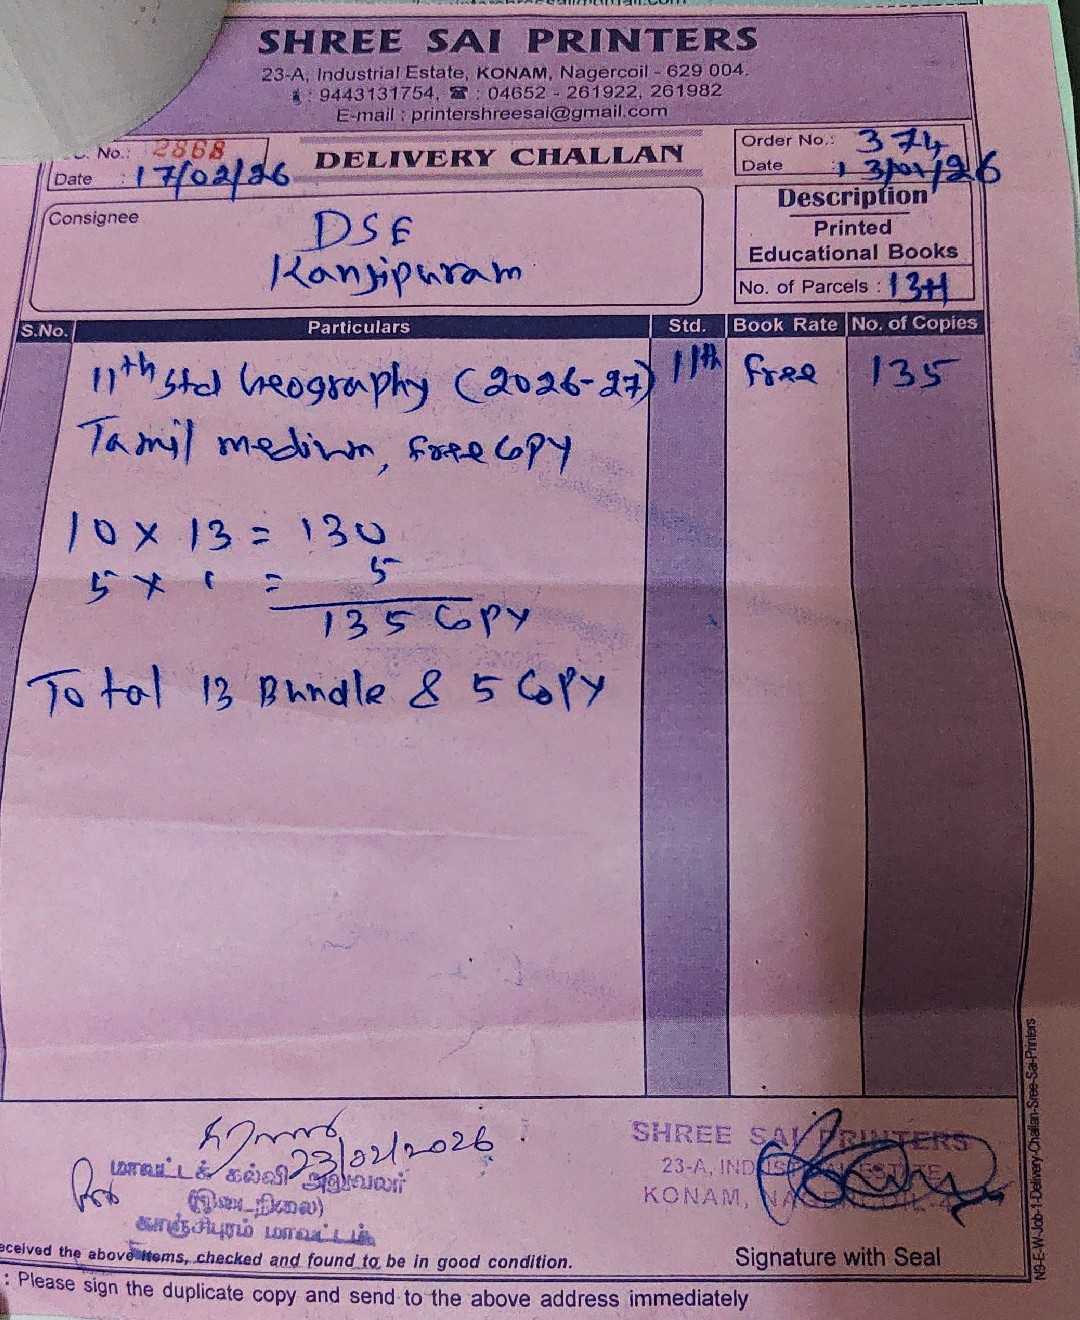 SHREE SAI PRINTERS
23-A, Industrial Estate, KONAM, Nagercoil - 629 004.
: 9443131754, ☎ : 04652 - 261922, 261982
E-mail : printershreesai@gmail.com
No.: 2868
Date : 17/02/26
DELIVERY CHALLAN
Order No.: 374
Date : 13/01/26
Consignee
DSE
Kanjipuram
Description
Printed
Educational Books
No. of Parcels : 13+1
S.No. Particulars Std. Book Rate No. of Copies
11th std Geography (2026-27) 11th free 135
Tamil medium, free copy
10 x 13 = 130
5 x 1 = 5
135 Copy
Total 13 Bundle & 5 Copy
23/02/2026
மாவட்டக் கல்வி அலுவலர்
(இடைநிலை)
காஞ்சிபுரம் மாவட்டம்
SHREE SAI PRINTERS
23-A, INDUSTRIAL ESTATE
KONAM,
eceived the above items, checked and found to be in good condition.
Signature with Seal
: Please sign the duplicate copy and send to the above address immediately
N9-E-W-Job-1-Delivery-Challan-Sree-Sai-Printers